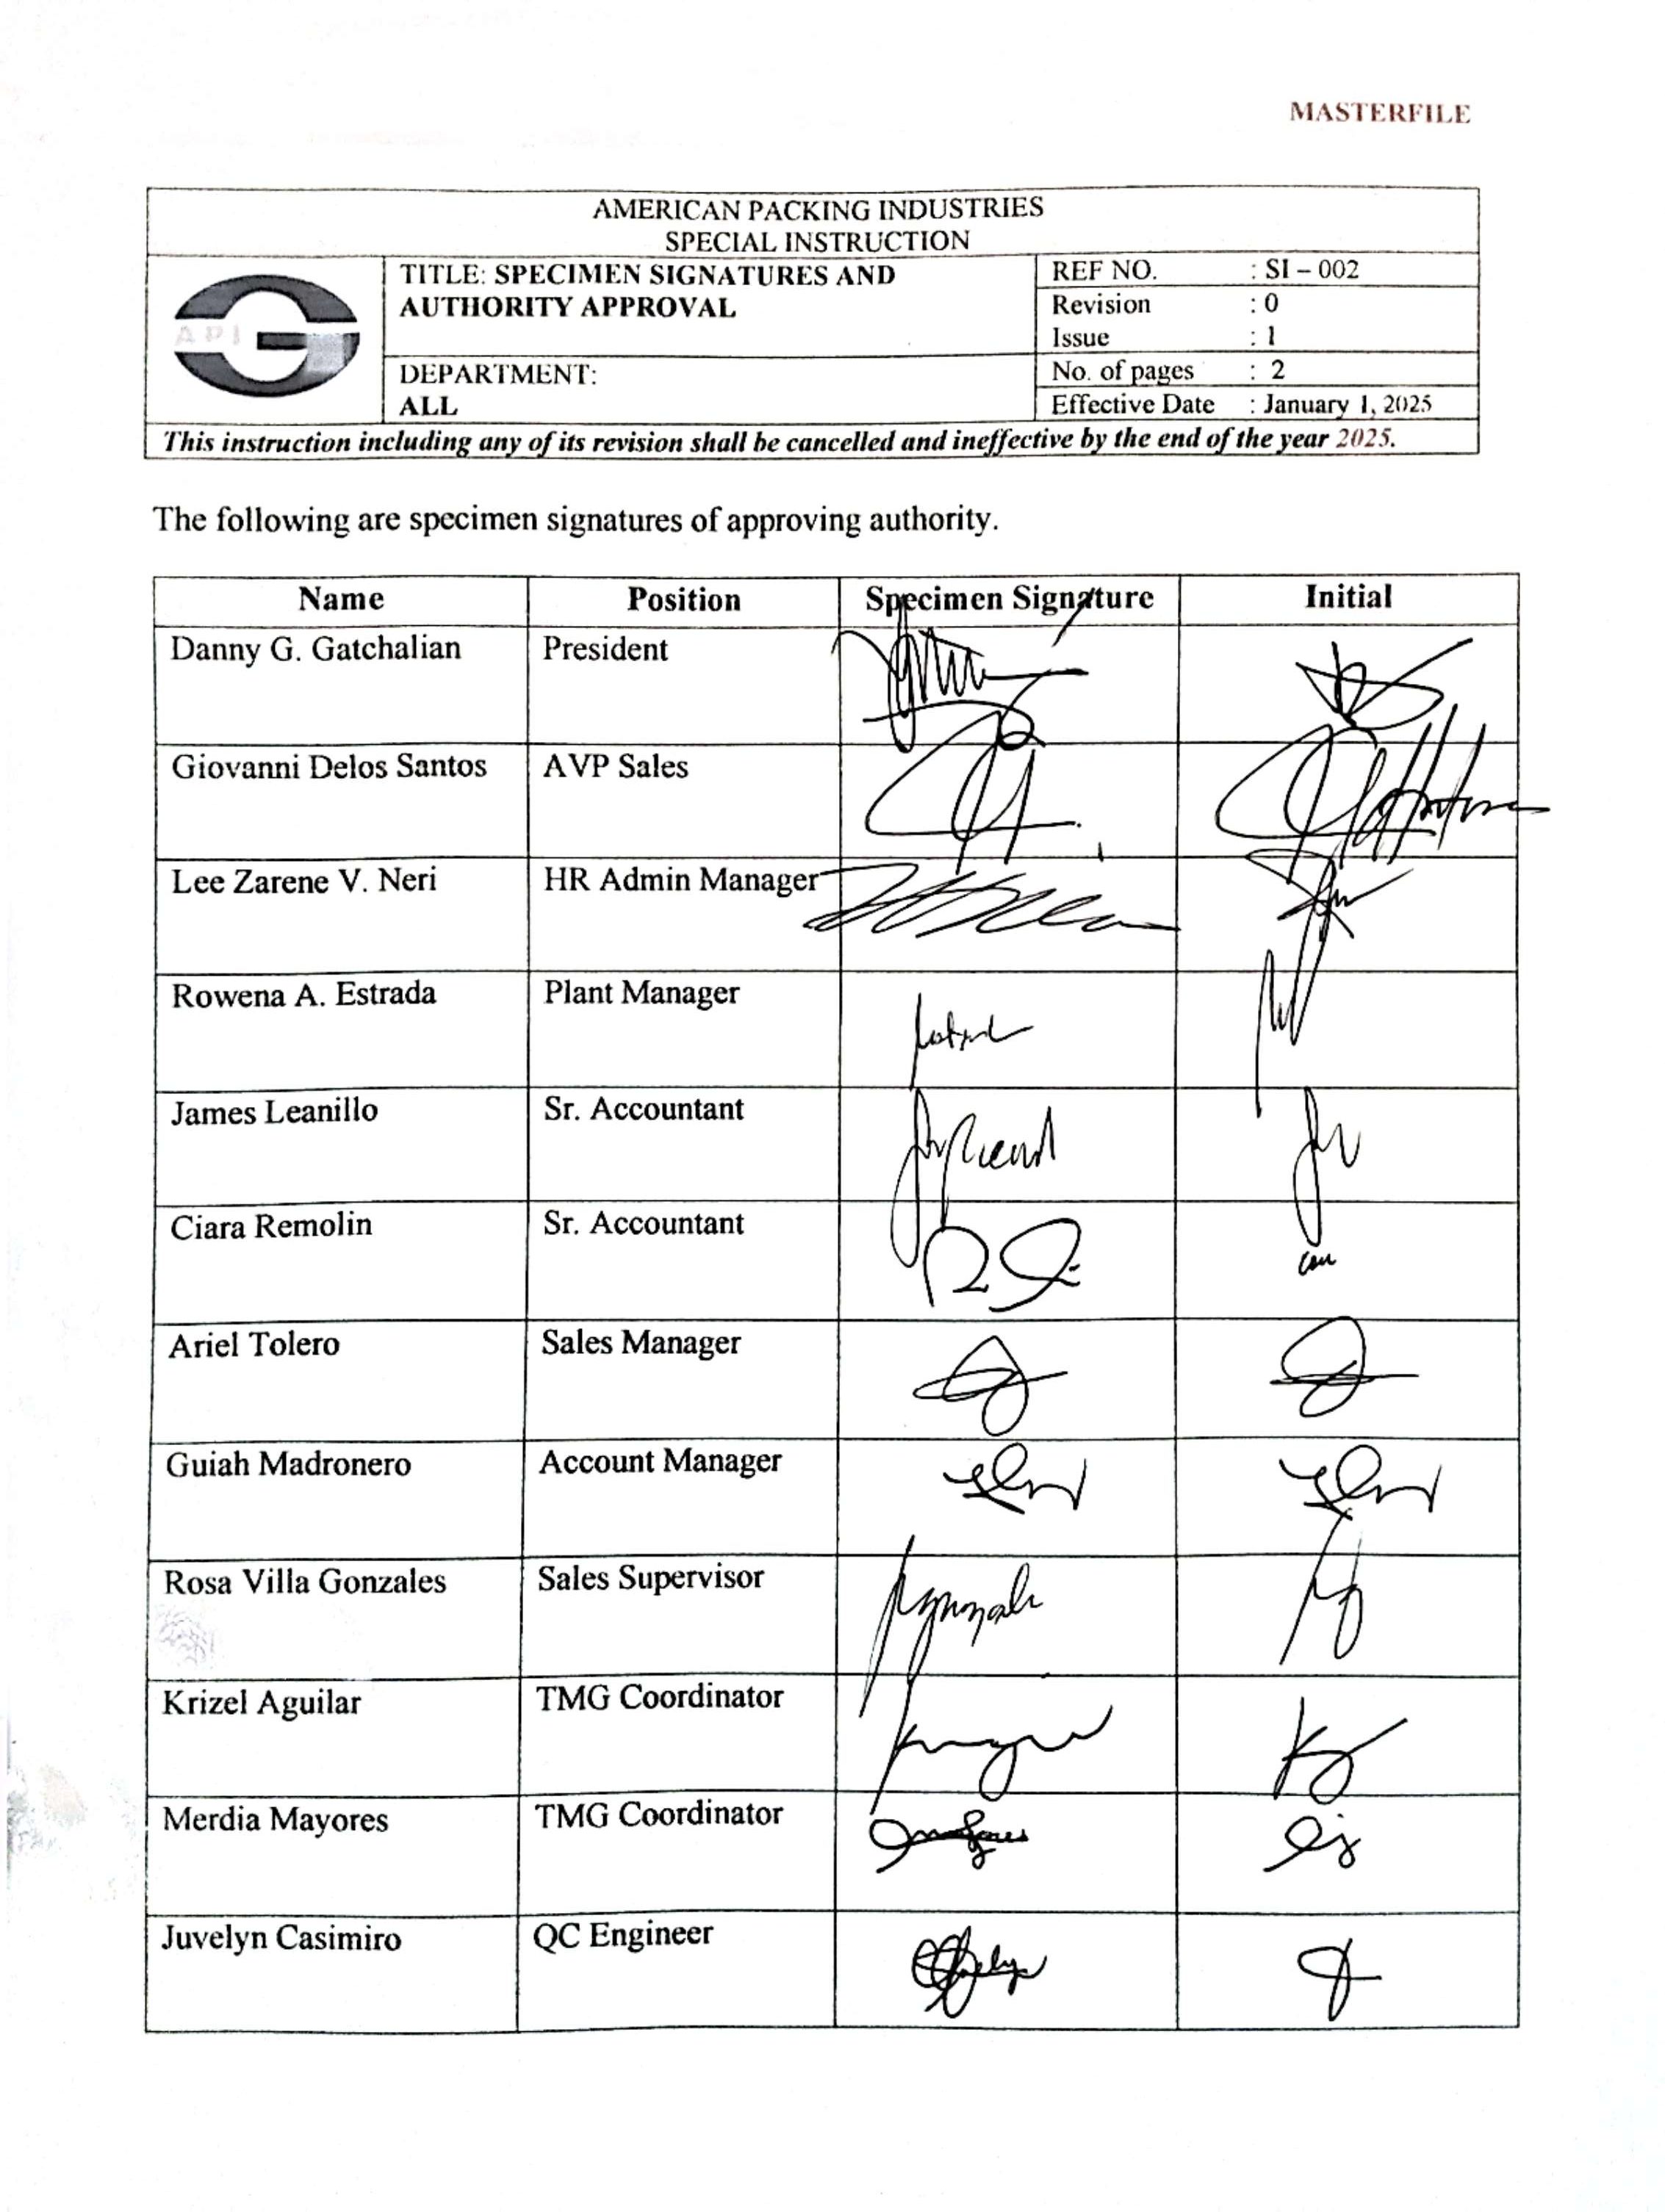 MASTERFILE
AMERICAN PACKING INDUSTRIES
SPECIAL INSTRUCTION
API
TITLE: SPECIMEN SIGNATURES AND
AUTHORITY APPROVAL
DEPARTMENT:
ALL
REF NO. : SI – 002
Revision : 0
Issue : 1
No. of pages : 2
Effective Date : January 1, 2025
This instruction including any of its revision shall be cancelled and ineffective by the end of the year 2025.
The following are specimen signatures of approving authority.
Name Position Specimen Signature Initial
Danny G. Gatchalian President
Giovanni Delos Santos AVP Sales
Lee Zarene V. Neri HR Admin Manager
Rowena A. Estrada Plant Manager
James Leanillo Sr. Accountant
Ciara Remolin Sr. Accountant
Ariel Tolero Sales Manager
Guiah Madronero Account Manager
Rosa Villa Gonzales Sales Supervisor
Krizel Aguilar TMG Coordinator
Merdia Mayores TMG Coordinator
Juvelyn Casimiro QC Engineer